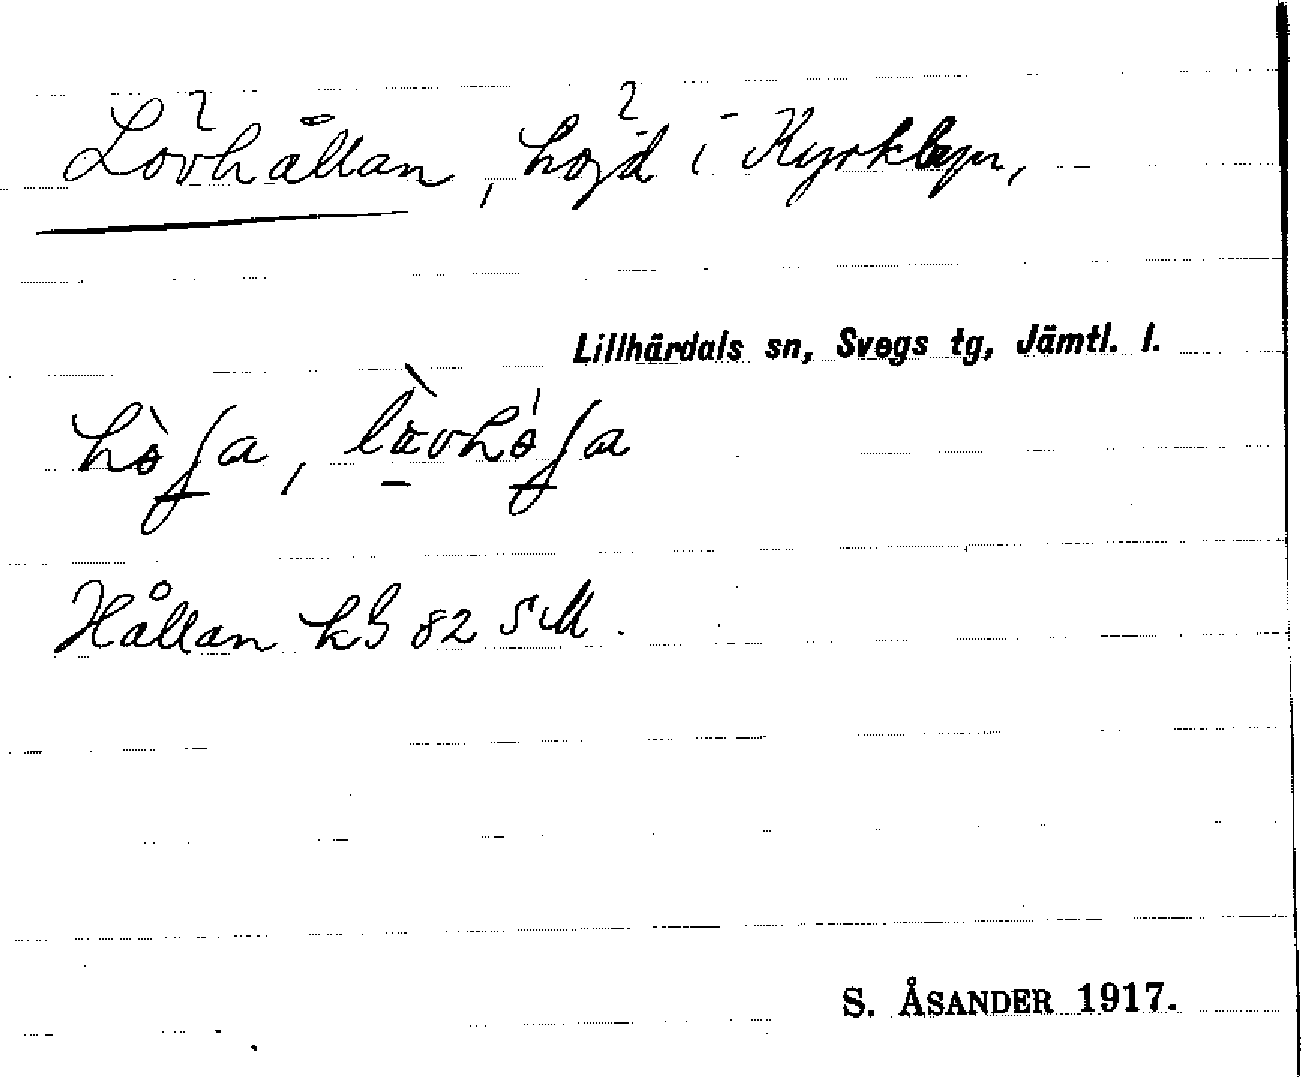 Lövhållan, höjd i Kyrkbyn,
Lillhärdals sn, Svegs tg, Jämtl. l.
Hållan kb 82 SM.
S. ÅSANDER 1917.